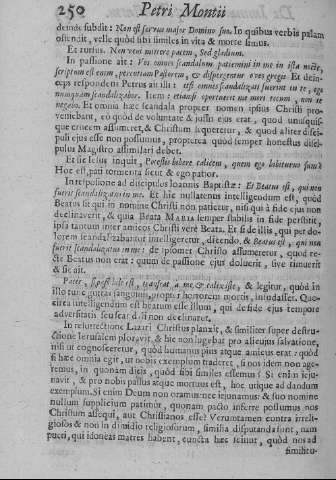 250 Petri Montii
deinde subdit: Non est servus major Domino suo. In quibus verbis palam
ostendit, velle quod sibi similes in vita & morte simus.
Et rursus. Non veni mittere pacem, Sed gladium.
In passione ait: Vos omnes scandalum patiemini in me in ista nocte,
scriptum est enim, percutiam Pastorem, & dispergentur oves gregis. Et dein-
ceps respondens Petrus ait illi: etsi omnes scandalizati fuerint in te, ego
nunquam scandalizabor. Item: etiamsi oportuerit me mori tecum, non te
negabo. Et omnia hæc scandala propter nomen ipsius Christi pro-
veniebant, eo quod de voluntate & jussu ejus erat, quod unusquis-
que crucem assumeret, & Christum sequeretur, & quod aliter disci-
puli ejus esse non possumus, propterea quod semper honestus disci-
pulus Magistro assimilari debet.
Et sic Iesus inquit, Potestis bibere calicem, quem ego bibiturus sum?
Hoc est, pati tormenta sicut & ego patior.
In responsione ad discipulos Ioannis Baptistæ: Et Beatus est, qui non
fuerit scandalizatus in me. Et hic nullatenus intelligendum est, quod
Beatus sit qui in nomine Christi non patietur, nisi qui à fide ejus non
declinaverit, & quia Beata MARIA semper stabilis in fide perstitit,
ipsa tantum inter amicos Christi verè Beata. Et si de illis, qui per do-
lorem scandalizabantur intelligeretur, dicendo, & Beatus est, qui non
fuerit scandalizatus in me: de ipsomet Christo assumeretur, quod re-
ctè Beatus non erat: quum de passione ejus doluerit, sive timuerit
& sic ait.
Pater, si possibile est, transeat à me calix iste, & legitur, quòd in
illo tunc guttas sanguinis propter horrorem mortis, insudasset. Quo-
circa intelligendum est beatum esse illum, qui de fide ejus tempore
adversitatis seu scandali non declinaret.
In resurrectione Lazari Christus planxit, & similiter super destru-
ctione Ierusalem ploravit, & hic non lugebat pro alicujus salvatione,
nisi ut cognosceretur, quòd humanus pius atque amicus erat: quod
si hæc omnia egit, ut nobis exemplum traderet, si nos idem non age-
remus, in quonam dieis, quòd sibi similes essemus? Si enim jeju-
navit, & pro nobis passus atque mortuus est, hoc utique ad dandum
exemplum. Si enim Deum non oramus nec jejunamus: & suo nomine
nullum supplicium patimur, quonam pacto inferre possumus nos
Christum assequi, aut Christianos esse? Veruntamen contra irreli-
giosos & non in dimidio religiosorum, similia disputanda sunt, nam
pueri, qui idoneas matres habent, cuncta hæc sciunt, quòd nos ad
similitu-